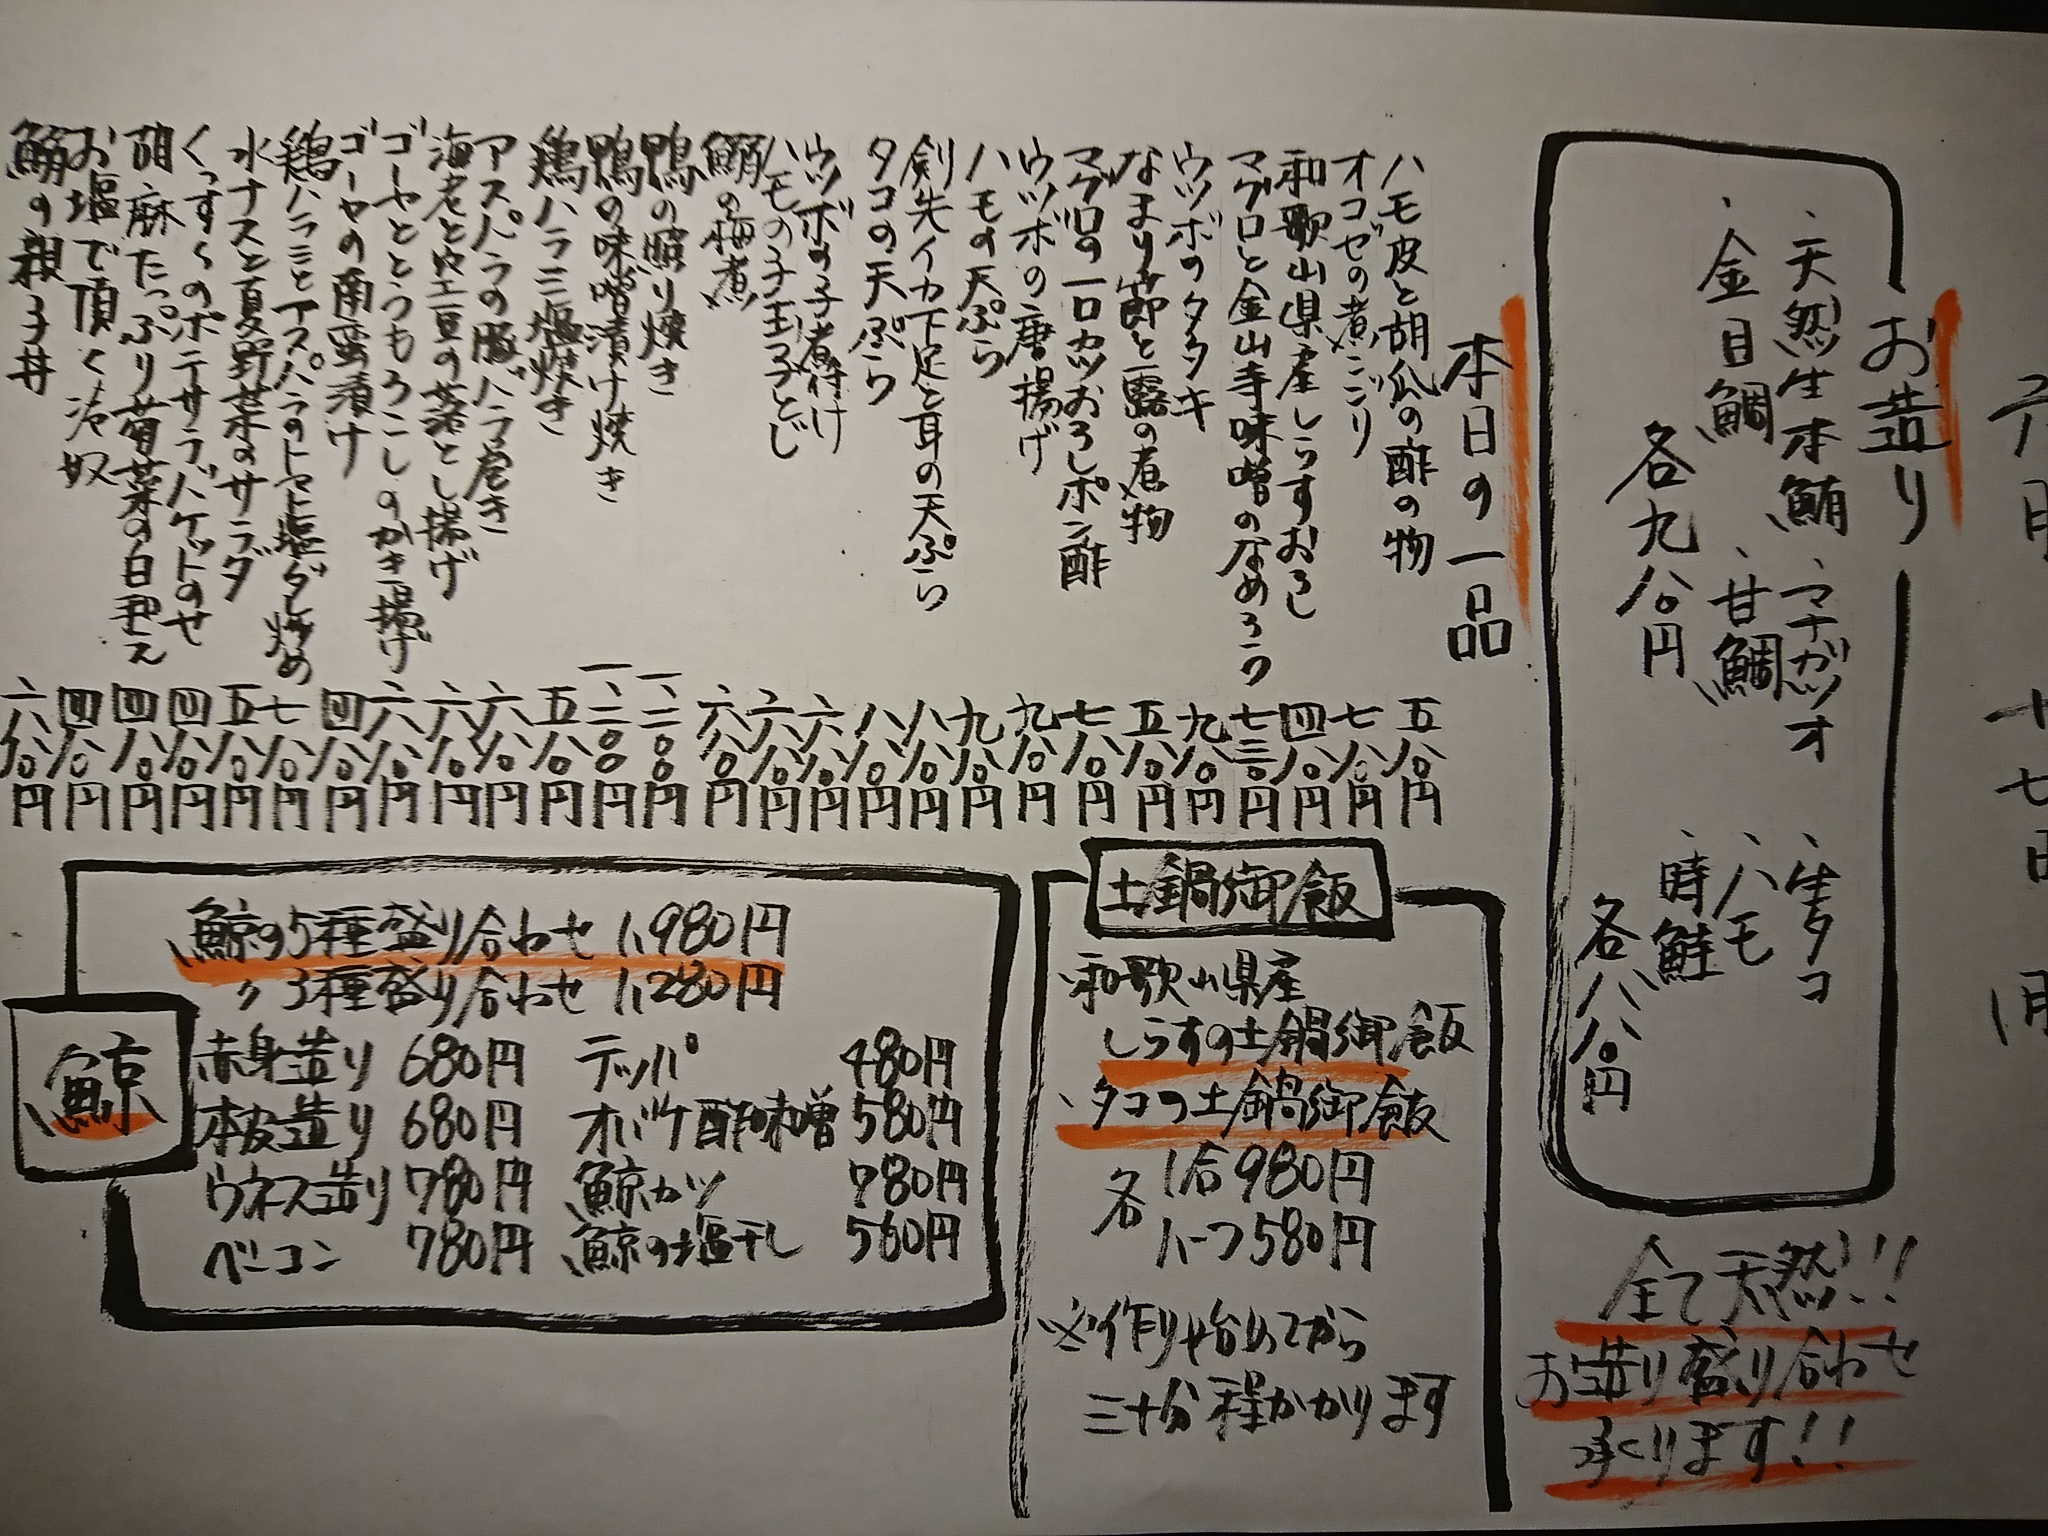 六月十七日
お造り
、天然生本鮪 、マナガツオ 、生タコ
、金目鯛 、甘鯛 、ハモ
各九八〇円
、時鮭
各八八〇円
全て天然!!
お造り盛り合わせ
承ります!!
本日の一品
ハモ皮と胡瓜の酢の物 五八〇円
オコゼの煮こごり 七八〇円
和歌山県産しらすおろし 四八〇円
マグロと金山寺味噌のなめろう 七三〇円
ウツボのタタキ 九八〇円
なまり節と蕗の煮物 五八〇円
マグロの一口カツおろしポン酢 七八〇円
ウツボの唐揚げ 九八〇円
ハモの天ぷら 九八〇円
剣先イカ下足と耳の天ぷら 八八〇円
タコの天ぷら 八八〇円
ウツボの子煮付け 六八〇円
ハモの子玉子とじ 六八〇円
鰯の梅煮 六八〇円
鴨の照り焼き 一、二〇〇円
鴨の味噌漬け焼き 一、二〇〇円
鶏ハラミ塩焼き 五八〇円
アスパラの豚バラ巻き 六八〇円
海老と空豆の落とし揚げ 六八〇円
ゴーヤととうもろこしのかき揚げ 六八〇円
ゴーヤの南蛮漬け 四八〇円
鶏ハラミとアスパラのトマト塩ダレ炒め 七八〇円
水ナスと夏野菜のサラダ 五八〇円
くっすくのポテサラバケットのせ 四八〇円
胡麻たっぷり菊菜の白和え 四八〇円
お塩で頂く冷奴 四八〇円
鰯の親子丼 六八〇円
土鍋御飯
、和歌山県産
しらすの土鍋御飯
、タコの土鍋御飯
各 1合980円
ハーフ580円
※作り始めてから
三十分程かかります
鯨
鯨の5種盛り合わせ 1,980円
〃3種盛り合わせ 1,280円
赤身造り 680円 テッパ 480円
本皮造り 680円 オバケ酢味噌 580円
ウネス造り 780円 鯨カツ 780円
ベーコン 780円 鯨の塩干し 560円